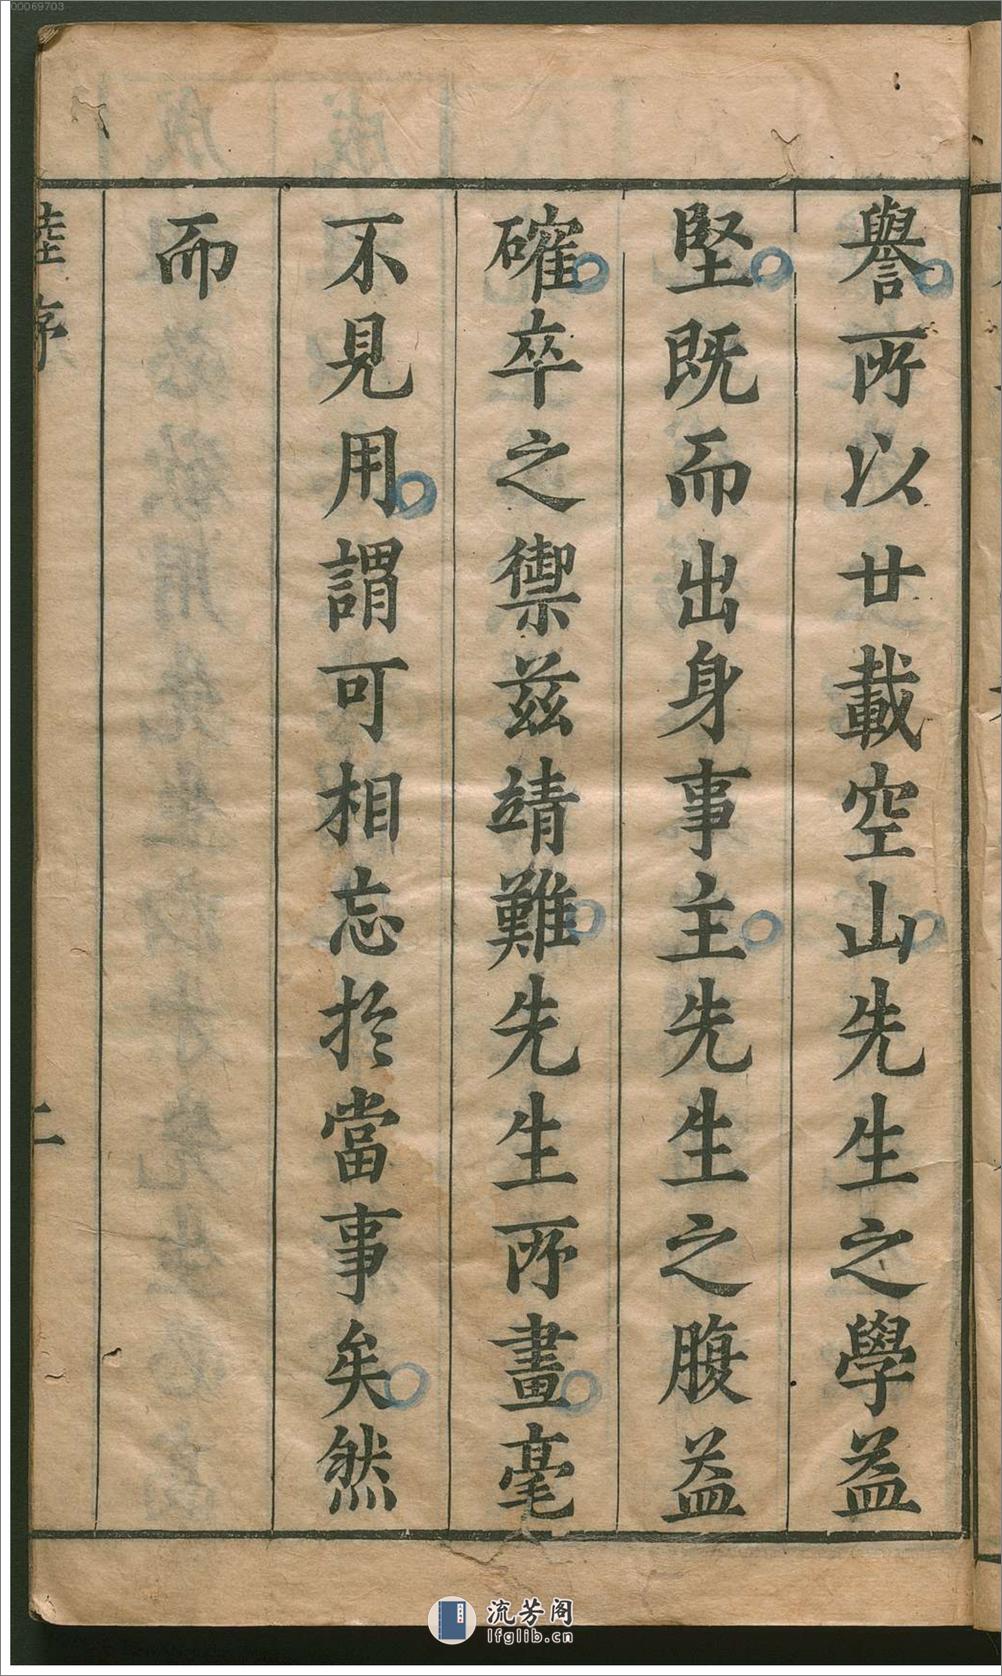 00069703
譽所以廿載空山先生之學益
堅既而出身事主先生之腹益
確卒之禦兹靖難先生所畫毫
不見用謂可相忘於當事矣然
而
陸序
二
流芳阁
lfglib.cn